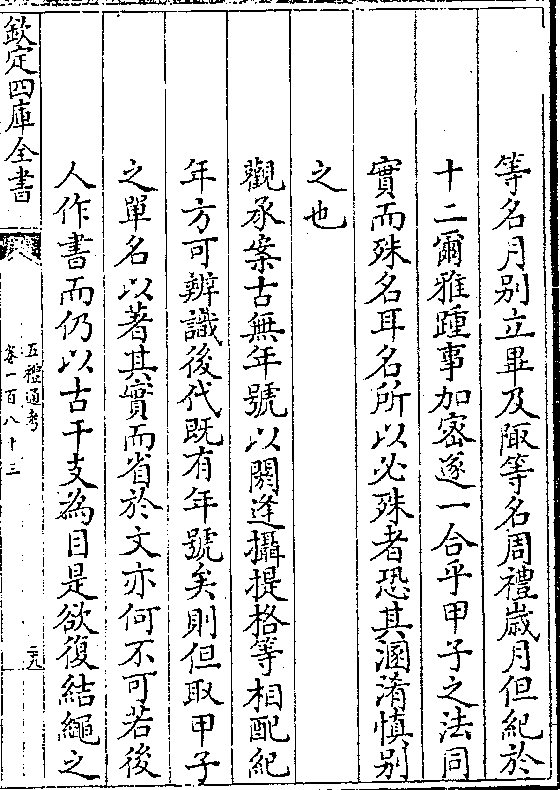 等名月别立畢及陬等名周禮歲月但紀於
十二爾雅踵事加密遂一合乎甲子之法同
實而殊名耳名所以必殊者恐其溷淆慎别
之也
觀承案古無年號以閼逢攝提格等相配紀
年方可辨識後代既有年號矣則但取甲子
之單名以著其實而省於文亦何不可若後
人作書而仍以古干支為目是欲復結繩之
欽定四庫全書
五禮通考
卷一百八十三
二九